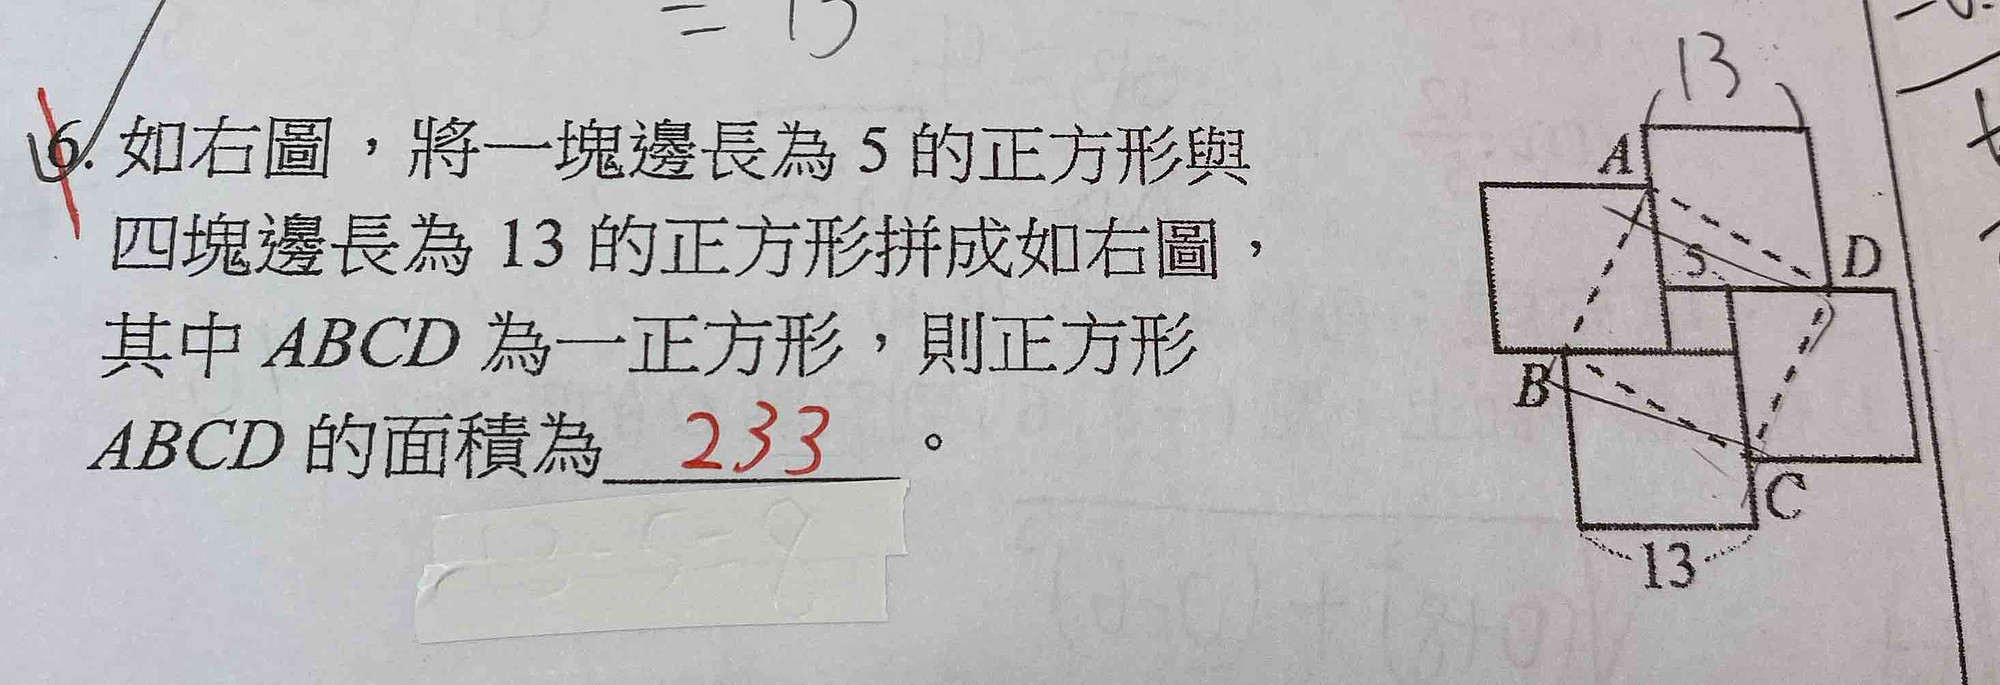 = 13
6. 如右圖，將一塊邊長為 5 的正方形與
四塊邊長為 13 的正方形拼成如右圖，
其中 ABCD 為一正方形，則正方形
ABCD 的面積為 233 。
13
A
5
D
B
C
13